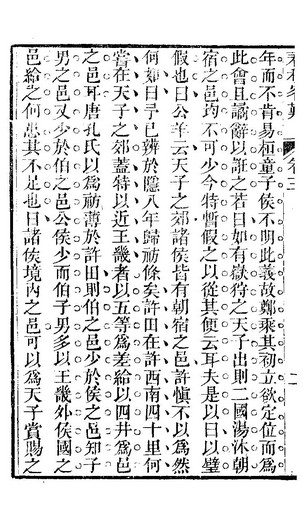 年而不肯易桓童子侯不明此義故鄭乘其初立欲定位而爲
此會且譎辭以誑之若曰如有嶽狩之天子出則二國湯沐朝
宿之邑均不可少今特暫假之以從其便云耳夫是以曰以璧
假也曰公羊云天子之郊諸侯皆有朝宿之邑許愼不以爲然
何如曰予已辨於隱八年歸祊條矣許田在許西南四十里何
嘗在天子之郊蓋特以近王畿者以五等爲差給以四井爲邑
之邑可唐孔氏以爲祊薄於許田則伯之邑少於侯之邑知子
男之邑又少於伯之邑公侯少而伯子男多以王畿外侯國之
邑給之何患其不足曰諸侯境內之邑可以爲天子賞賜之